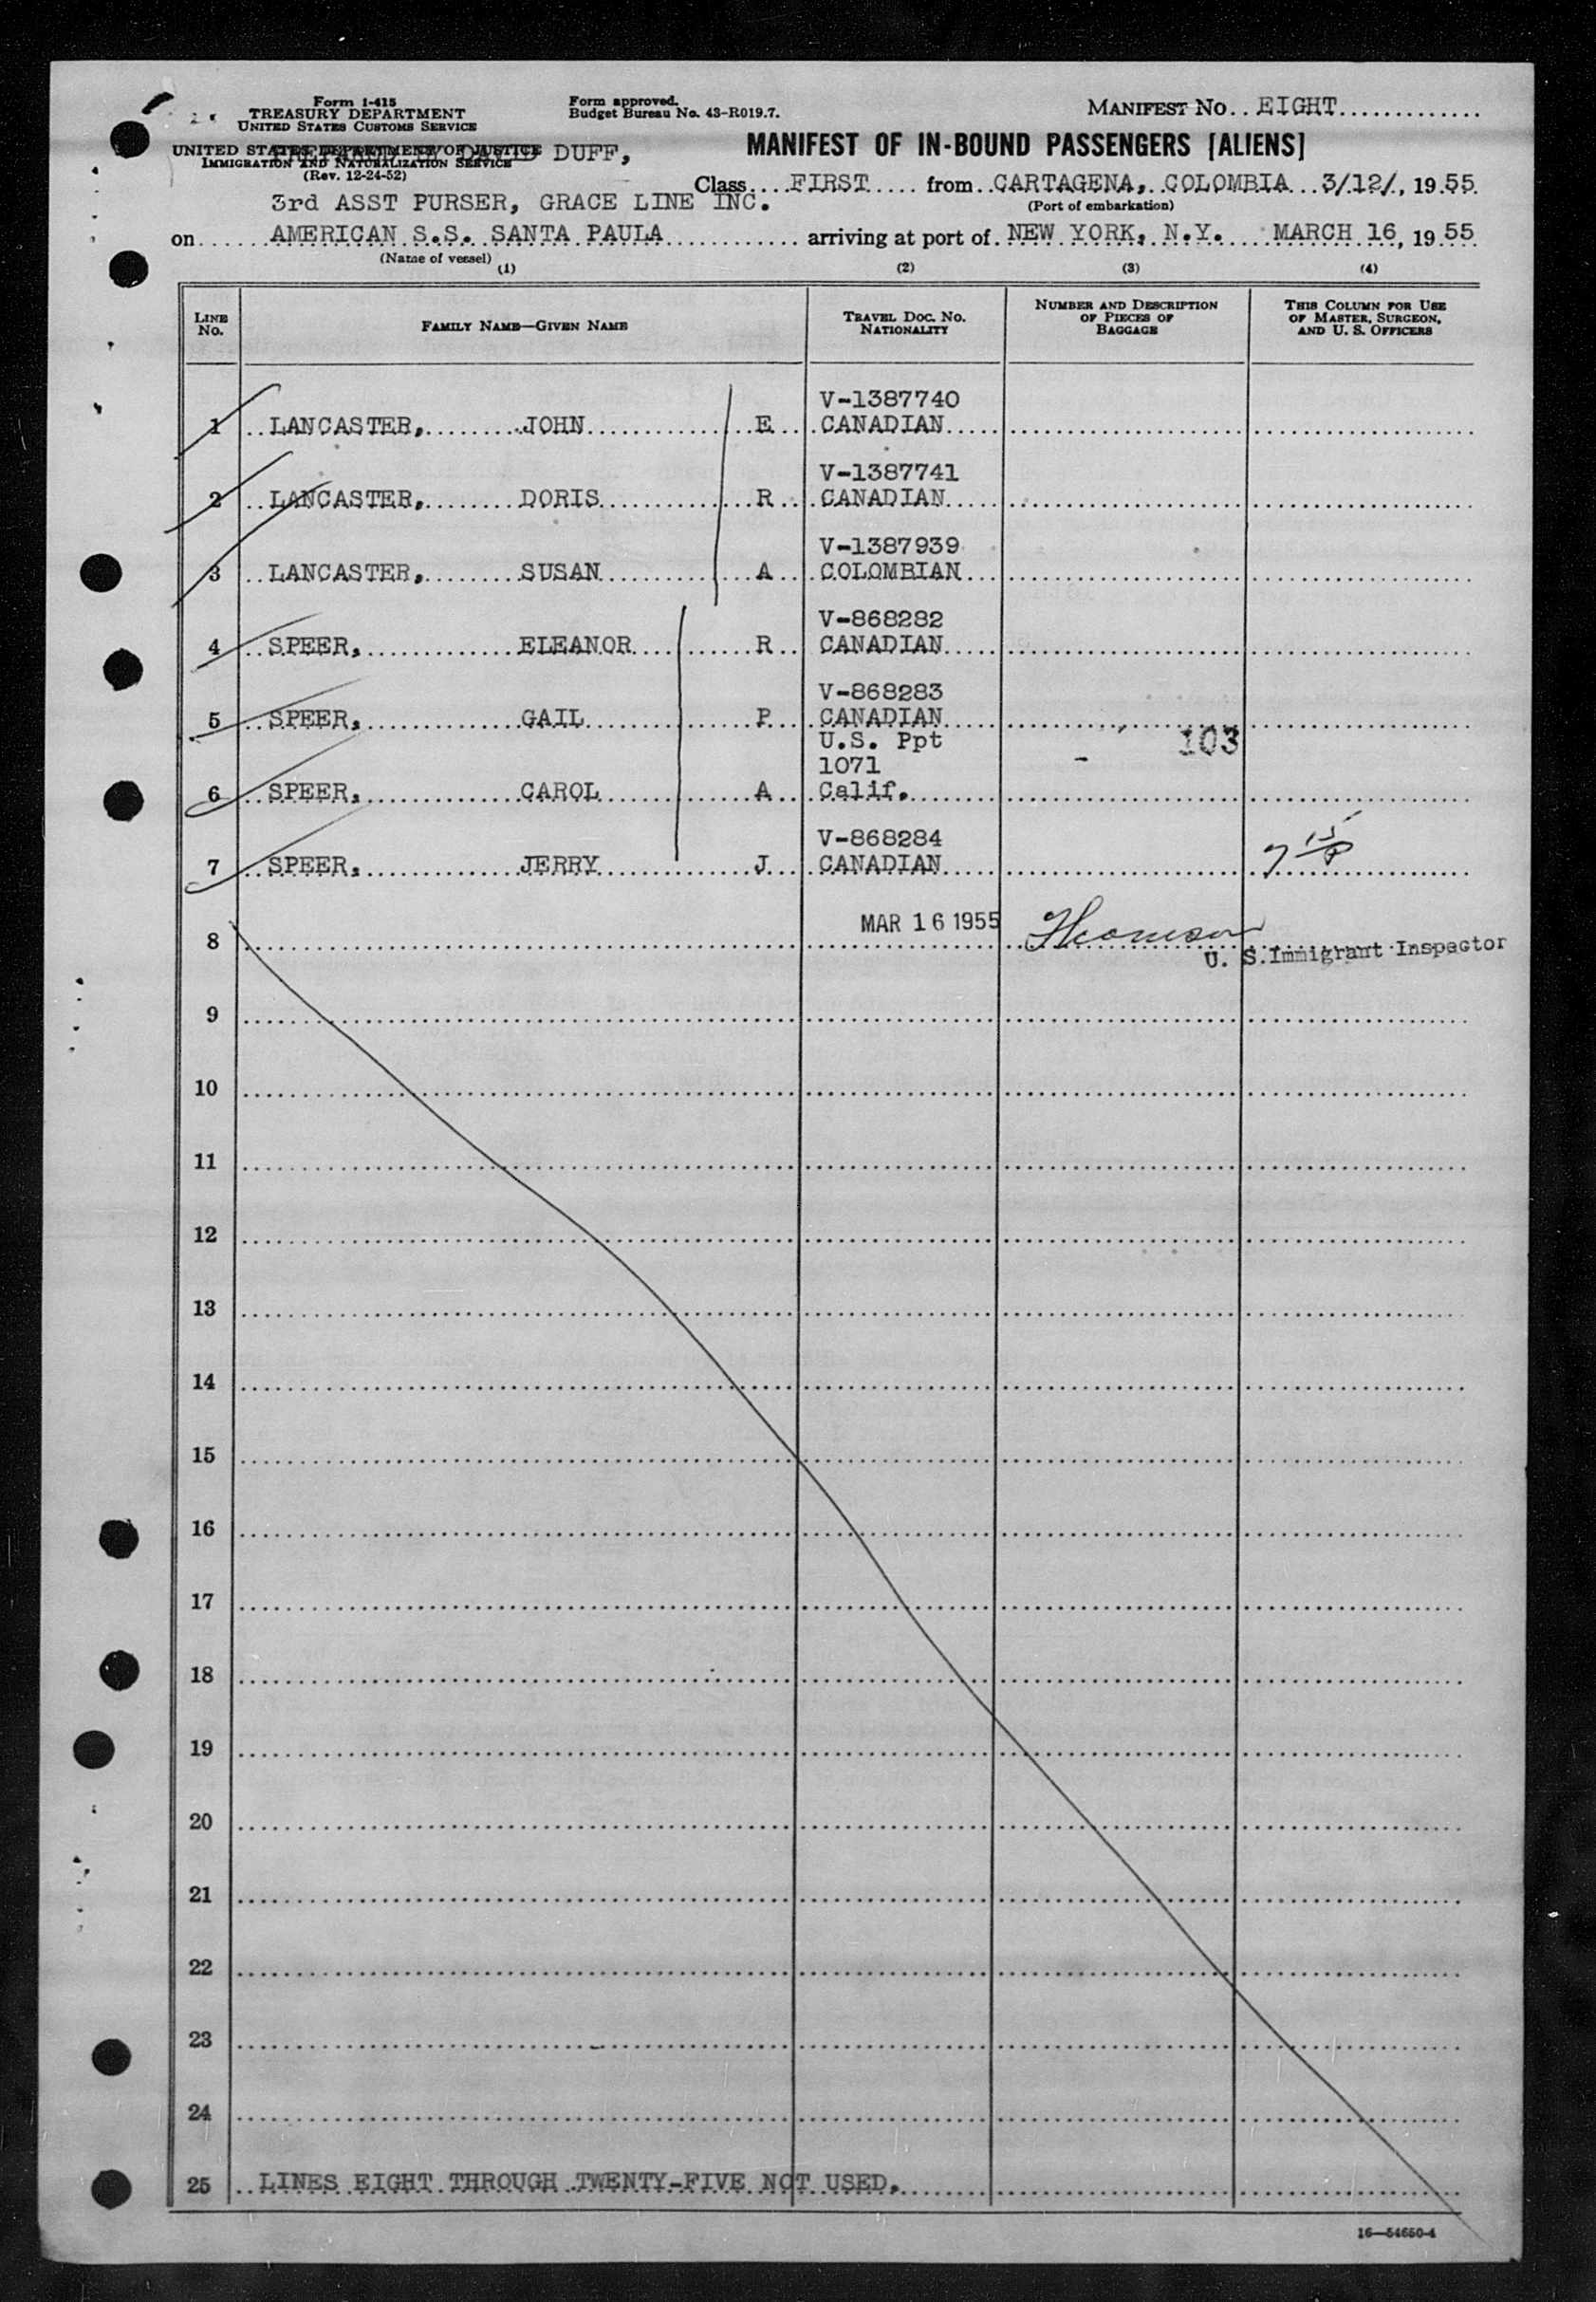 Form I-415
TREASURY DEPARTMENT
UNITED STATES CUSTOMS SERVICE
UNITED STATES DEPARTMENT OF JUSTICE
IMMIGRATION AND NATURALIZATION SERVICE
(Rev. 12-24-52)
Form approved.
Budget Bureau No. 43-R019.7.
MANIFEST NO. EIGHT
MANIFEST OF IN-BOUND PASSENGERS [ALIENS]
DUFF,
3rd ASST PURSER, GRACE LINE INC.
Class FIRST from CARTAGENA, COLOMBIA 3/12/, 1955
(Port of embarkation)
on AMERICAN S.S. SANTA PAULA arriving at port of NEW YORK, N.Y. MARCH 16, 1955
(Name of vessel)
(1) (2) (3) (4)
LINE NO.
FAMILY NAME—GIVEN NAME
TRAVEL DOC. NO. NATIONALITY
NUMBER AND DESCRIPTION OF PIECES OF BAGGAGE
THIS COLUMN FOR USE OF MASTER, SURGEON, AND U. S. OFFICERS
V-1387740
1 LANCASTER, JOHN E CANADIAN
V-1387741
2 LANCASTER, DORIS R CANADIAN
V-1387939
3 LANCASTER, SUSAN A COLOMBIAN
V-868282
4 SPEER, ELEANOR R CANADIAN
V-868283
5 SPEER, GAIL P CANADIAN
U.S. Ppt
103
1071
6 SPEER, CAROL A Calif.
V-868284
7 SPEER, JERRY J CANADIAN
MAR 16 1955
8
U. S. Immigrant Inspector
9
10
11
12
13
14
15
16
17
18
19
20
21
22
23
24
25 LINES EIGHT THROUGH TWENTY-FIVE NOT USED.
16—54650-4